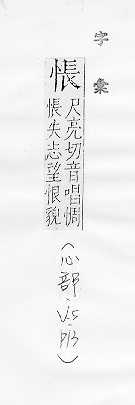 字彙
悵
尺亮切音唱惆
悵失志望恨貌
(心部.V.5.P.13)